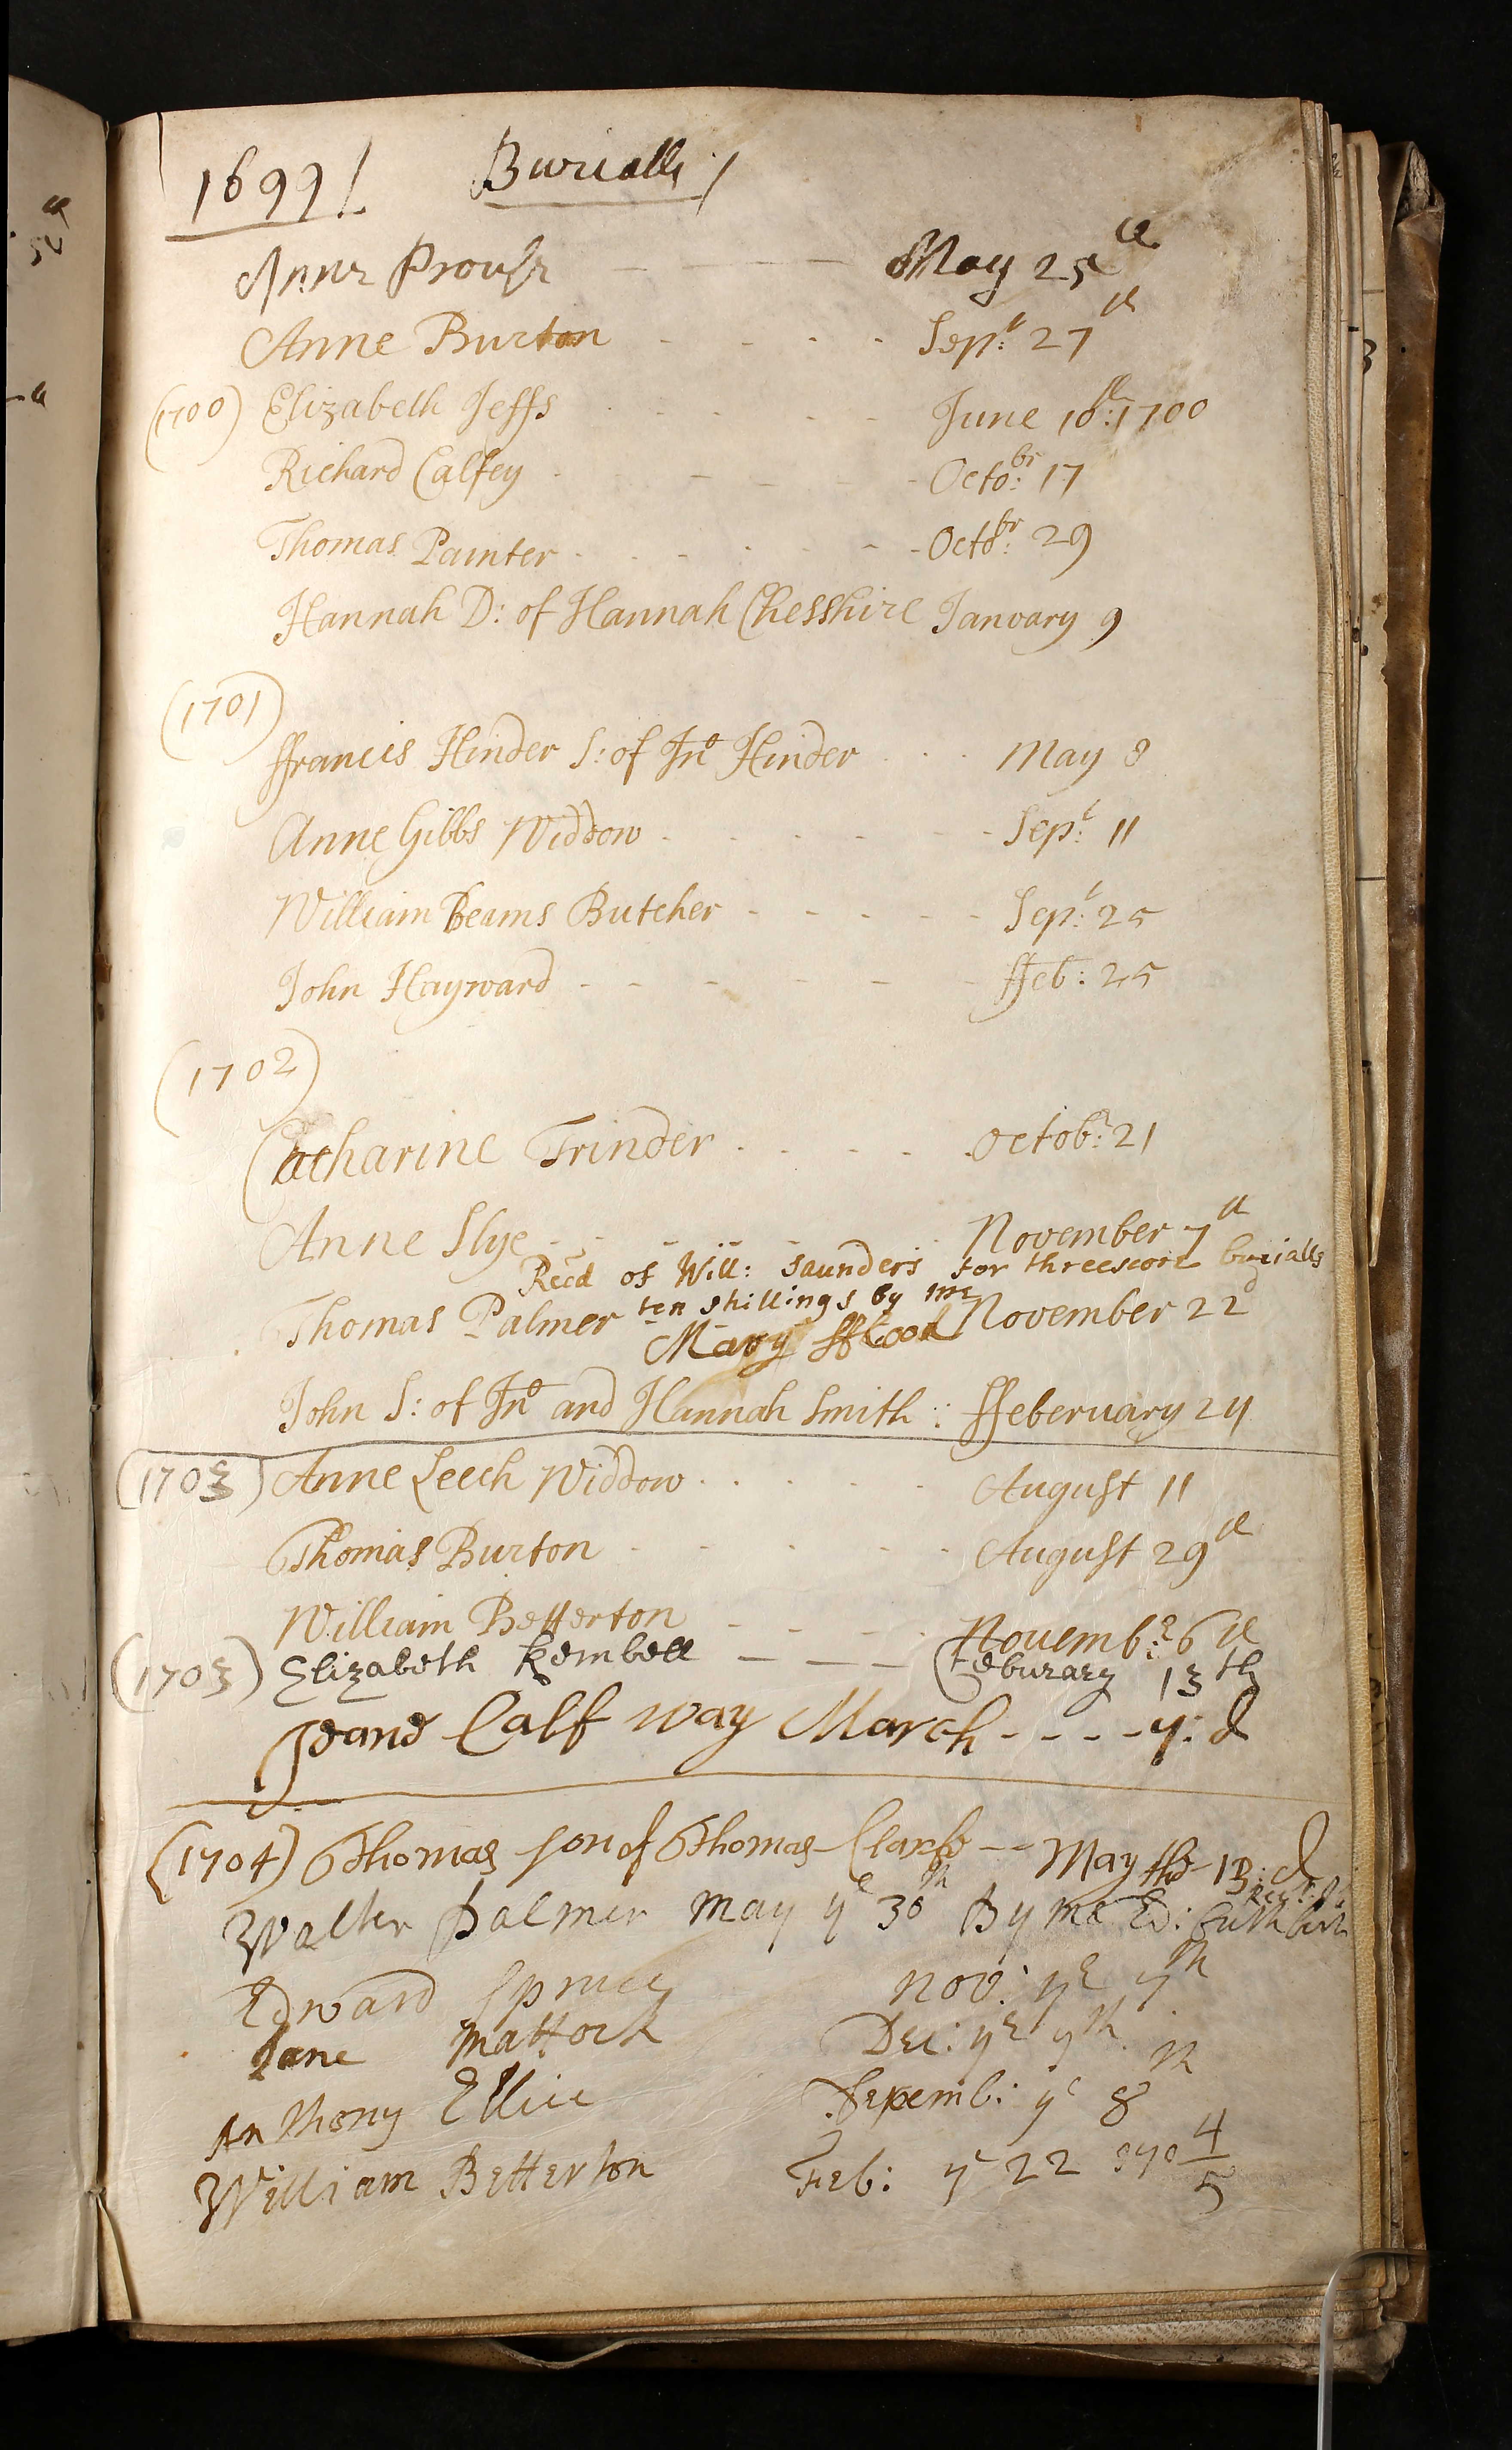 1699 Burialls
Anne Prouse May 25th
Anne Burton Sept: 27th
(1700) Elizabeth Jeffs June 10th: 1700
Richard Calfey Octobr: 17
Thomas Painter Octobr: 29
Hannah D: of Hannah Chesshire January 9
(1701)
ffrancis Hinder S: of Jno Hinder May 8
Anne Gibbs Widdow Sept: 11
William Beams Butcher Sept: 25
John Hayward ffeb: 25
(1702)
Catharine Trinder Octobr: 21
Anne Slye November 7th
Recd of Will: Saunders for threescore burialls
ten shillings by me
Thomas Palmer November 22d
Mary fflood
John S: of Jno and Hannah Smith: ffeberuary 24
(1703) Anne Leech Widdow August 11
Thomas Burton August 29th
William Betterton Novembr: 6th
(1703) Elizabeth Kembell feburary 13th
Jeane Calf way March y: d
(1704) Thomas son of Thomas Clarke May the 13: d
Walter Palmer May ye 30th By me Ed: Cuthbert
Edward Spruce Nov: ye 7th
Jane Mattock Dec: ye 9th
Anthony Ellice Sepemb: ye 8th
William Betterton Feb: ye 22 1704/5